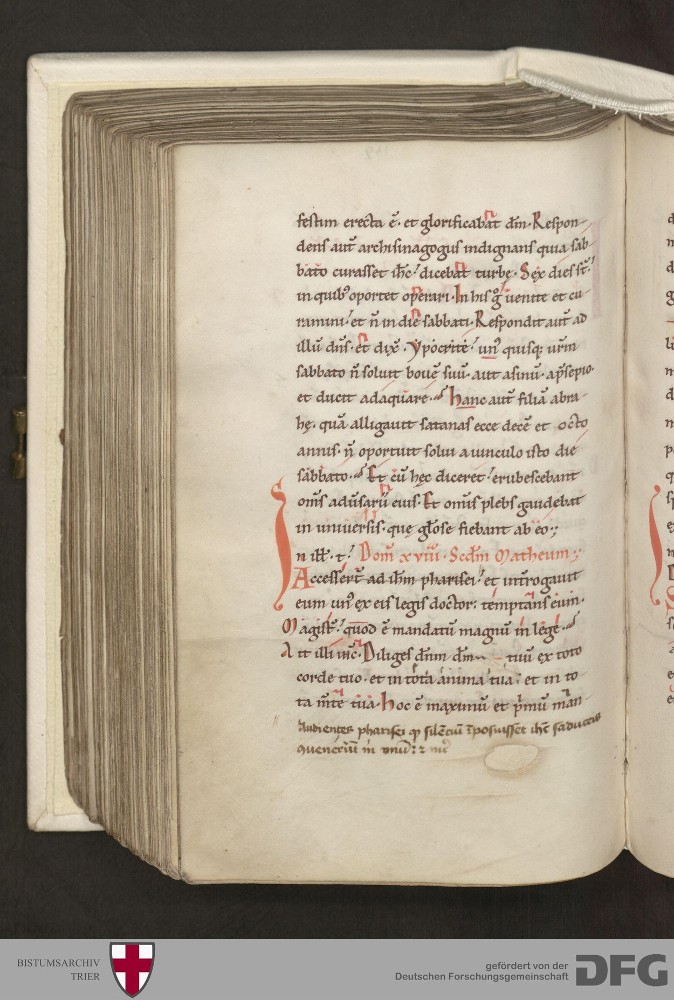 festim erecta ē. et glorificabat dm̄. Respon-
dens aut̄ archisinagogus indignans quia sab-
bato curasset ih̄c. dicebat turbę. Sex dies st̄.
in quib; oportet operari. In his g̊ uenite et cu-
ramini. et n̄ in die sabbati. Respondit aut̄ ad
illū dn̄s. et dix̄. Ypocrite. un᷒ quisq; ur̄m
sabbato n̄ soluit bouē suū. aut asinū. a p̄sepio.
et ducit adaquare. hanc aut̄ filiā abra-
hę. quā alligauit satanas ecce decē et octo
annis. n̄ oportuit solui a uinculo isto die
sabbato. Et cū hęc diceret. erubescebant
om̄s aduersarii eius. Et omnis plebs gaudebat
in uniuersis. quę gl̄ose fiebant ab eo.
In ill̄. t̄. Dom̄ xviii. Scd̄m Matheum.
Accesserūt ad ih̄m pharisei. et int̄rogauit
eum un᷒ ex eis legis doctor. temptans eum.
Magist̄. quod ē mandatū magnū in lege.
Ait illi ih̄c. Diliges dn̄m dm̄ tuū ex toto
corde tuo. et in tota anima tua. et in to
ta m̄te tua. hoc ē maximū et p̄mū man-
Audientes pharisei q̄ silēciū īposuisset ih̄c saduceis
conuenerūt in unū.
BISTUMSARCHIV
TRIER
gefördert von der
Deutschen Forschungsgemeinschaft
DFG